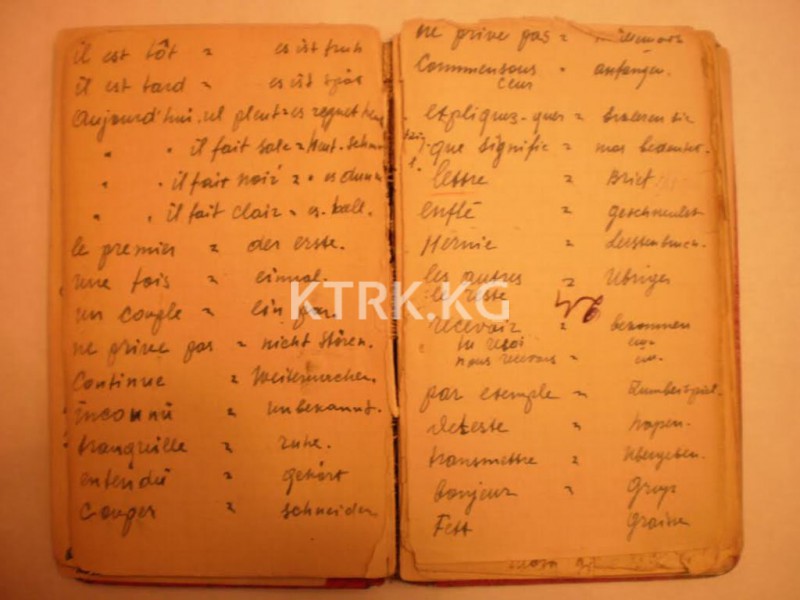 il est tôt = es ist fruh
il est tard = es ist spät
Aujourd'hui, il pleut = es regnet heut
" " il fait sale = Heut. schmu
" " il fait noir = " es dunn
" " il fait clair = es. hell.
le premier = der erste.
une fois = einmal.
un couple = ein par.
ne prive pas = nicht stören.
Continue = Weitermachen.
inconnü = unbekannt.
tranquille = ruhe.
entendü = gehört
Couper = schneiden.
ne prive pas =
Commensons = anfangen.
expliquez-
que signifie = was bedeutet.
lettre = Brief.
enflé =
Hernie = Leistenbruch.
les autres = Übriges
le reste
46
recevoir = bekommen
tu resoi
nous recevons =
par exemple = Zumbeispiel.
deteste =
transmettre = Übergeben.
bonjeur =
Fett
KTRK.KG